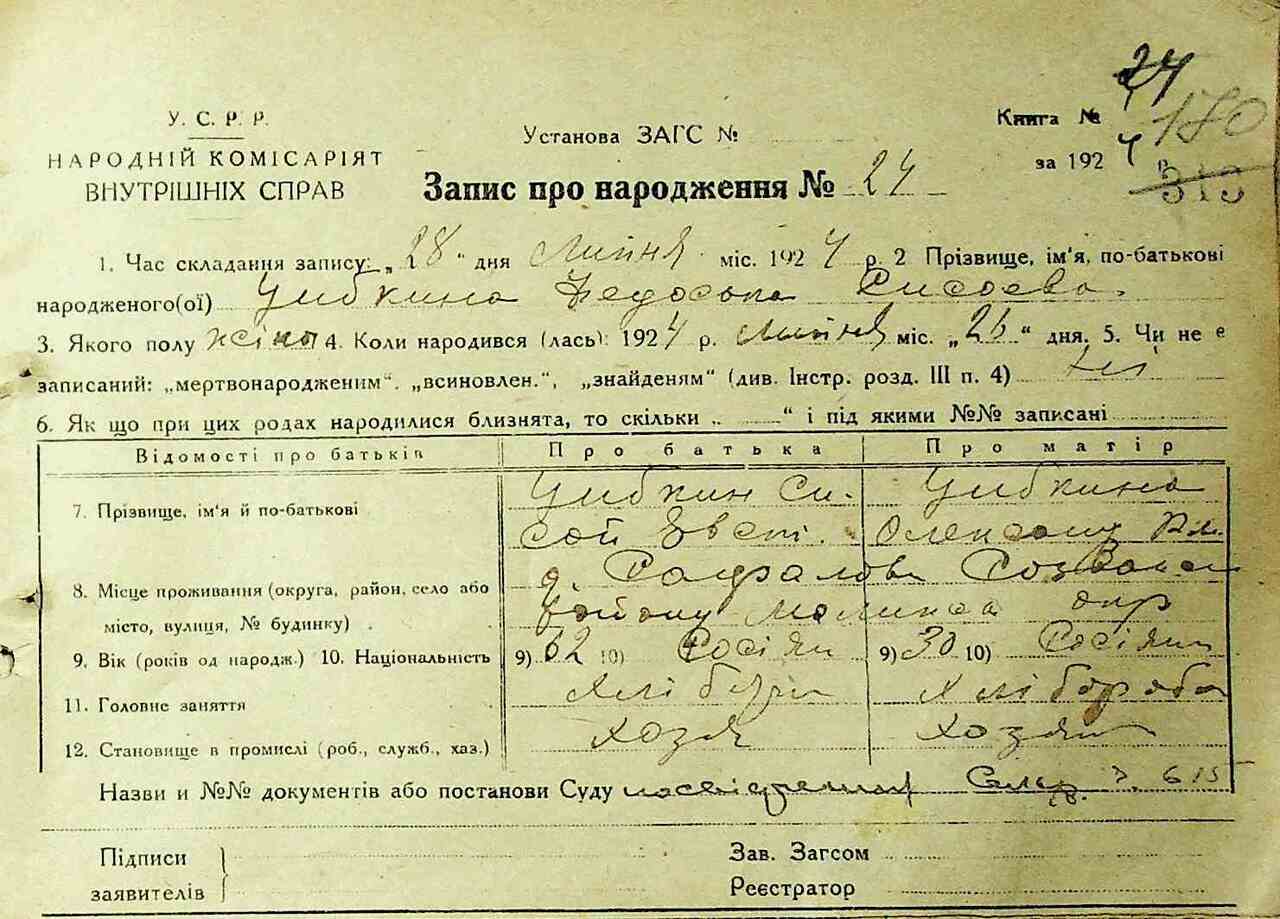 24
180
У. С. Р. Р.
НАРОДНІЙ КОМІСАРІЯТ
ВНУТРІШНІХ СПРАВ
Установа ЗАГС №
Книга №
за 1924 р.
313
Запис про народження № 24
1. Час складання запису: „28“ дня Липня міс. 1924 р. 2 Прізвище, ім'я, по-батькові
народженого(ої) Улибкина Федосья Сисоева
3. Якого полу жіно 4. Коли народився (лась): 1924 р. Липня міс. „26“ дня. 5. Чи не є
записаний: „мертвонародженим“. „всиновлен.“, „знайденям“ (див. Інстр. розд. III п. 4) ні
6. Як що при цих родах народилися близнята, то скільки „ “ і під якими №№ записані
Відомості про батьків Про батька Про матір
7. Прізвище, ім'я й по-батькові
Улибкин Си-
сой Евст.
Улибкина
8. Місце проживання (округа, район, село або
місто, вулиця, № будинку)
району окр
9. Вік (років од народж.) 10. Національність 9) 10) Росіян 9) 30 10) Росіян
11. Головне заняття Хлібороб Хлібороб
12. Становище в промислі (роб., служб., хаз.) хозя хозя
Назви и №№ документів або постанови Суду
Підписи
заявителів
Зав. Загсом
Реєстратор